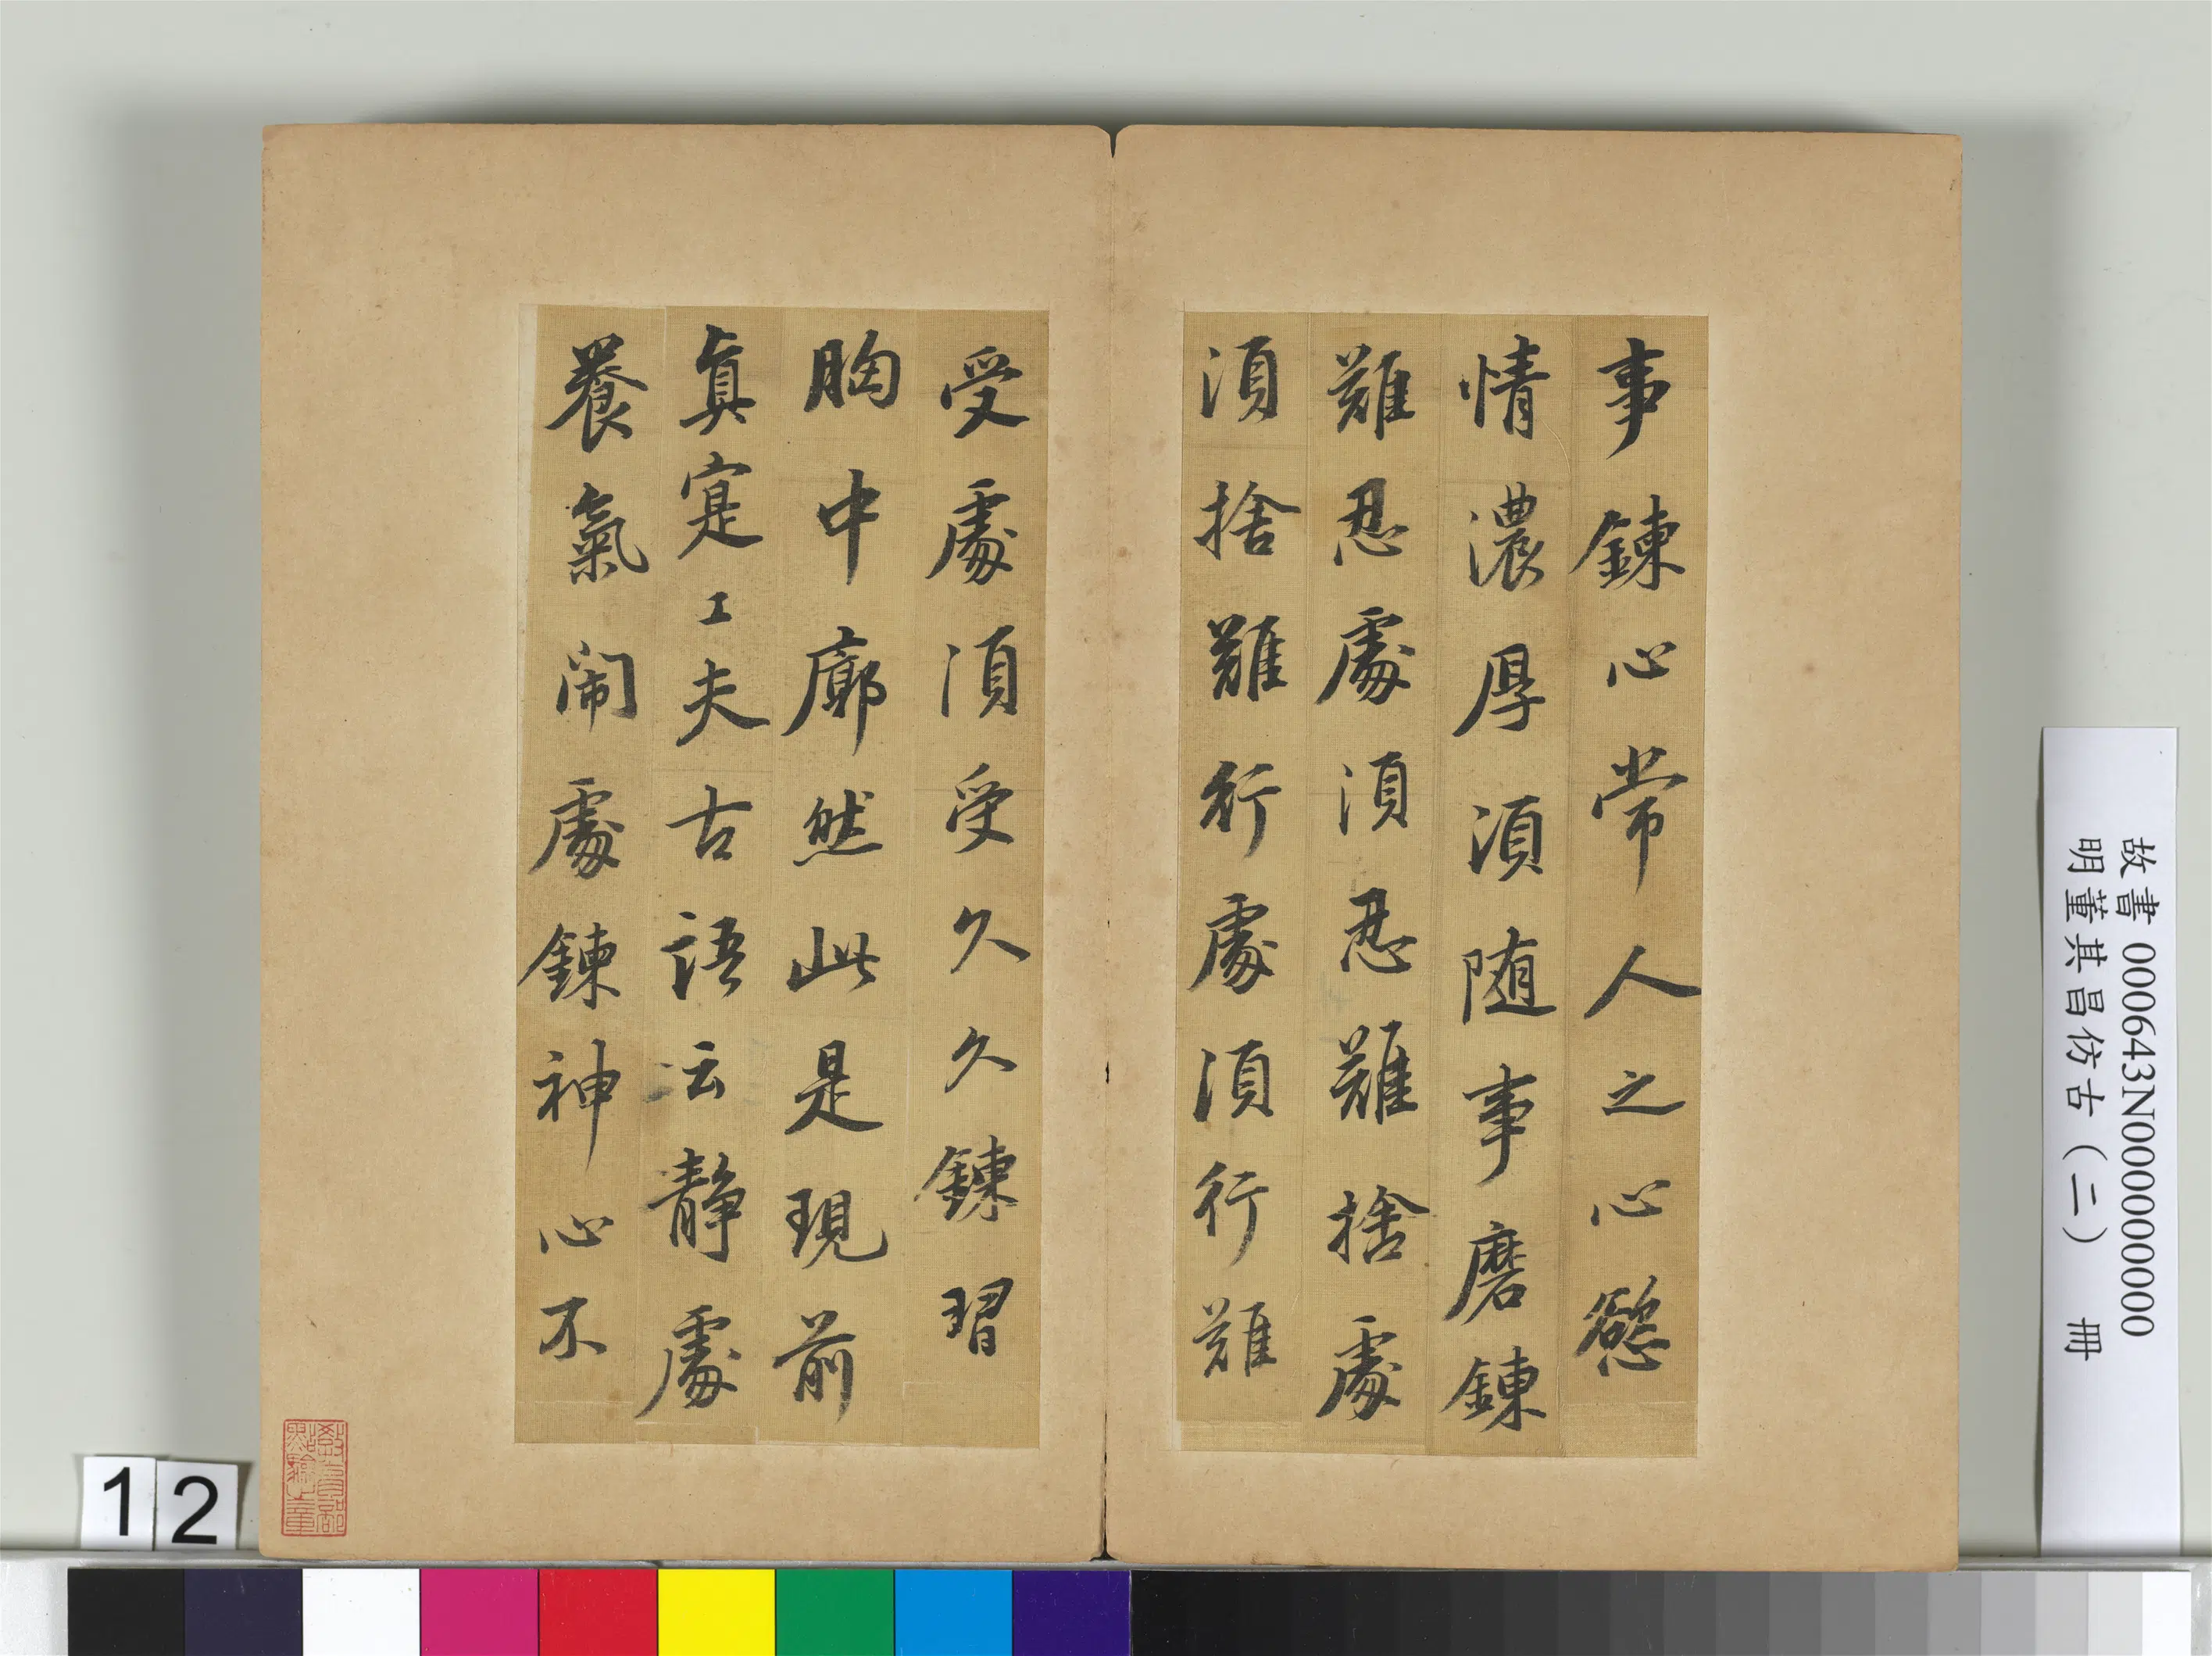 事鍊心常人之心慾
情濃厚須随事磨鍊
難忍處須忍難捨處
須捨難行處須行難
受處須受久久鍊習
胸中廓然此是現前
真寔工夫古語云静處
養氣闹處鍊神心不
教育部
點驗之章
故書 000643N000000000
明董其昌仿古（二） 冊
12